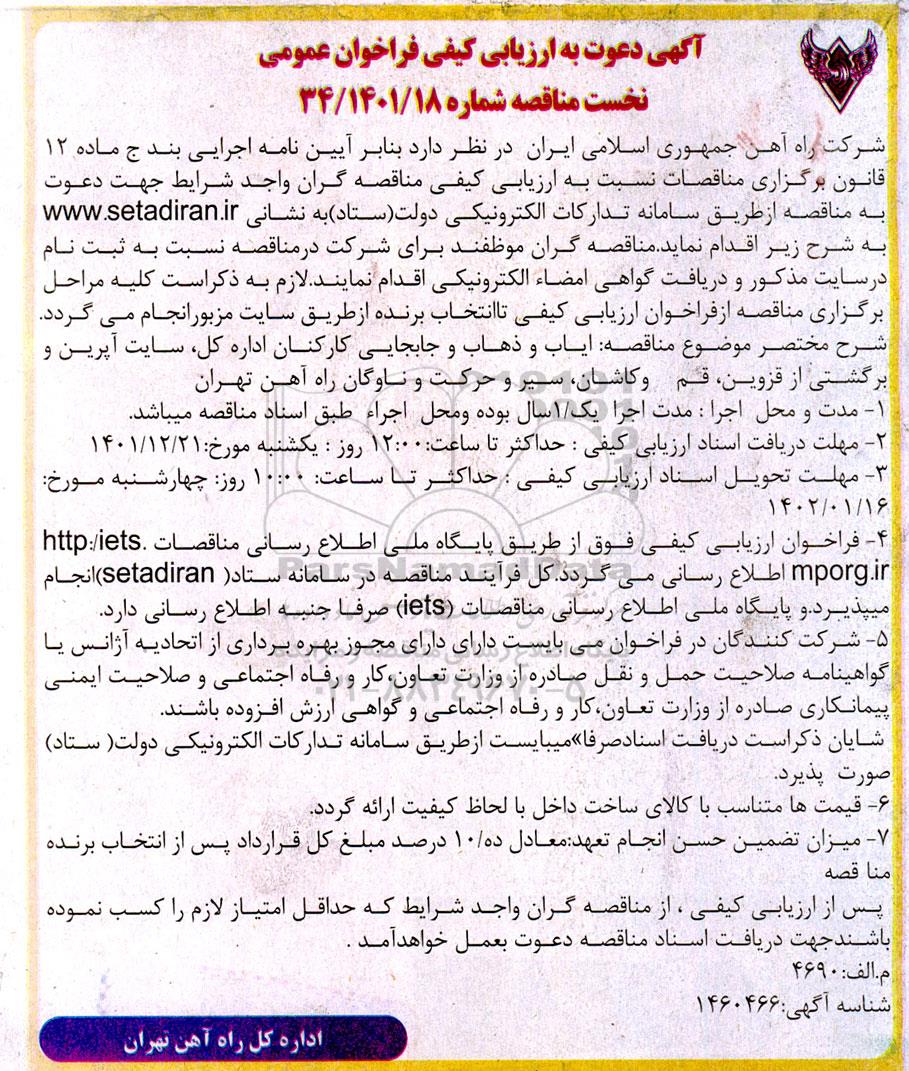 آگهی دعوت به ارزیابی کیفی فراخوان عمومی
نخست مناقصه شماره ۳۴/۱۴۰۱/۱۸
شرکت راه آهن جمهوری اسلامی ایران در نظر دارد بنابر آیین نامه اجرایی بند ج ماده ۱۲
قانون برگزاری مناقصات نسبت به ارزیابی کیفی مناقصه گران واجد شرایط جهت دعوت
به مناقصه ازطریق سامانه تدارکات الکترونیکی دولت(ستاد)به نشانی www.setadiran.ir
به شرح زیر اقدام نماید.مناقصه گران موظفند برای شرکت درمناقصه نسبت به ثبت نام
درسایت مذکور و دریافت گواهی امضاء الکترونیکی اقدام نمایند.لازم به ذکراست کلیه مراحل
برگزاری مناقصه ازفراخوان ارزیابی کیفی تاانتخاب برنده ازطریق سایت مزبورانجام می گردد.
شرح مختصر موضوع مناقصه: ایاب و ذهاب و جابجایی کارکنان اداره کل، سایت آپرین و
برگشتی از قزوین، قم وکاشان، سیر و حرکت و ناوگان راه آهن تهران
۱- مدت و محل اجرا : مدت اجرا یک/۱سال بوده ومحل اجراء طبق اسناد مناقصه میباشد.
۲- مهلت دریافت اسناد ارزیابی کیفی : حداکثر تا ساعت:۱۲:۰۰ روز : یکشنبه مورخ:۱۴۰۱/۱۲/۲۱
۳- مهلت تحویل اسناد ارزیابی کیفی : حداکثر تا ساعت: ۱۰:۰۰ روز: چهارشنبه مورخ:
۱۴۰۲/۰۱/۱۶
۴- فراخوان ارزیابی کیفی فوق از طریق پایگاه ملی اطلاع رسانی مناقصات http:/iets.
mporg.ir اطلاع رسانی می گردد.کل فرآیند مناقصه در سامانه ستاد( setadiran)انجام
میپذیرد.و پایگاه ملی اطلاع رسانی مناقصات (iets) صرفا جنبه اطلاع رسانی دارد.
۵- شرکت کنندگان در فراخوان می بایست دارای دارای مجوز بهره برداری از اتحادیه آژانس یا
گواهینامه صلاحیت حمل و نقل صادره از وزارت تعاون،کار و رفاه اجتماعی و صلاحیت ایمنی
پیمانکاری صادره از وزارت تعاون،کار و رفاه اجتماعی و گواهی ارزش افزوده باشند.
شایان ذکراست دریافت اسنادصرفا»میبایست ازطریق سامانه تدارکات الکترونیکی دولت( ستاد)
صورت پذیرد.
۶- قیمت ها متناسب با کالای ساخت داخل با لحاظ کیفیت ارائه گردد.
۷- میزان تضمین حسن انجام تعهد:معادل ده/۱۰ درصد مبلغ کل قرارداد پس از انتخاب برنده
منا قصه
پس از ارزیابی کیفی ، از مناقصه گران واجد شرایط که حداقل امتیاز لازم را کسب نموده
باشندجهت دریافت اسناد مناقصه دعوت بعمل خواهدآمد .
م.الف:۴۶۹۰
شناسه آگهی:۱۴۶۰۴۶۶
اداره کل راه آهن تهران
ParsNamadData
۰۲۱-۸۸۳۴۹۶۷۰-۵